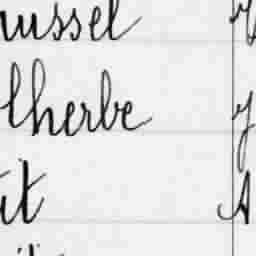 ussel
lherbe y
it A